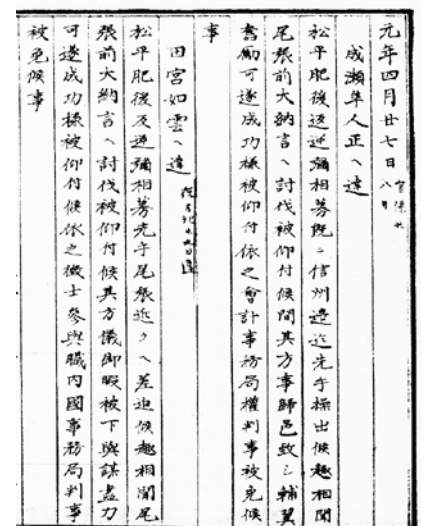 元年四月廿七日
成瀬隼人正ヘ達
松平肥後逆逆彌相募既ニ信州邊迄先手操出候趣相聞
尾張前大納言ヘ討伐被仰付候間其方事歸邑致シ輔翼
奮勵可遂成功様被仰付依之會計事務局權判事被免候
事
田宮如雲ヘ達
松平肥後反逆彌相募先手尾張近クヘ差迫候趣相聞尾
張前大納言ヘ討伐被仰付候其方儀御暇被下與謀盡力
可遂成功様被仰付候依之徴士參與職內國事務局判事
被免候事